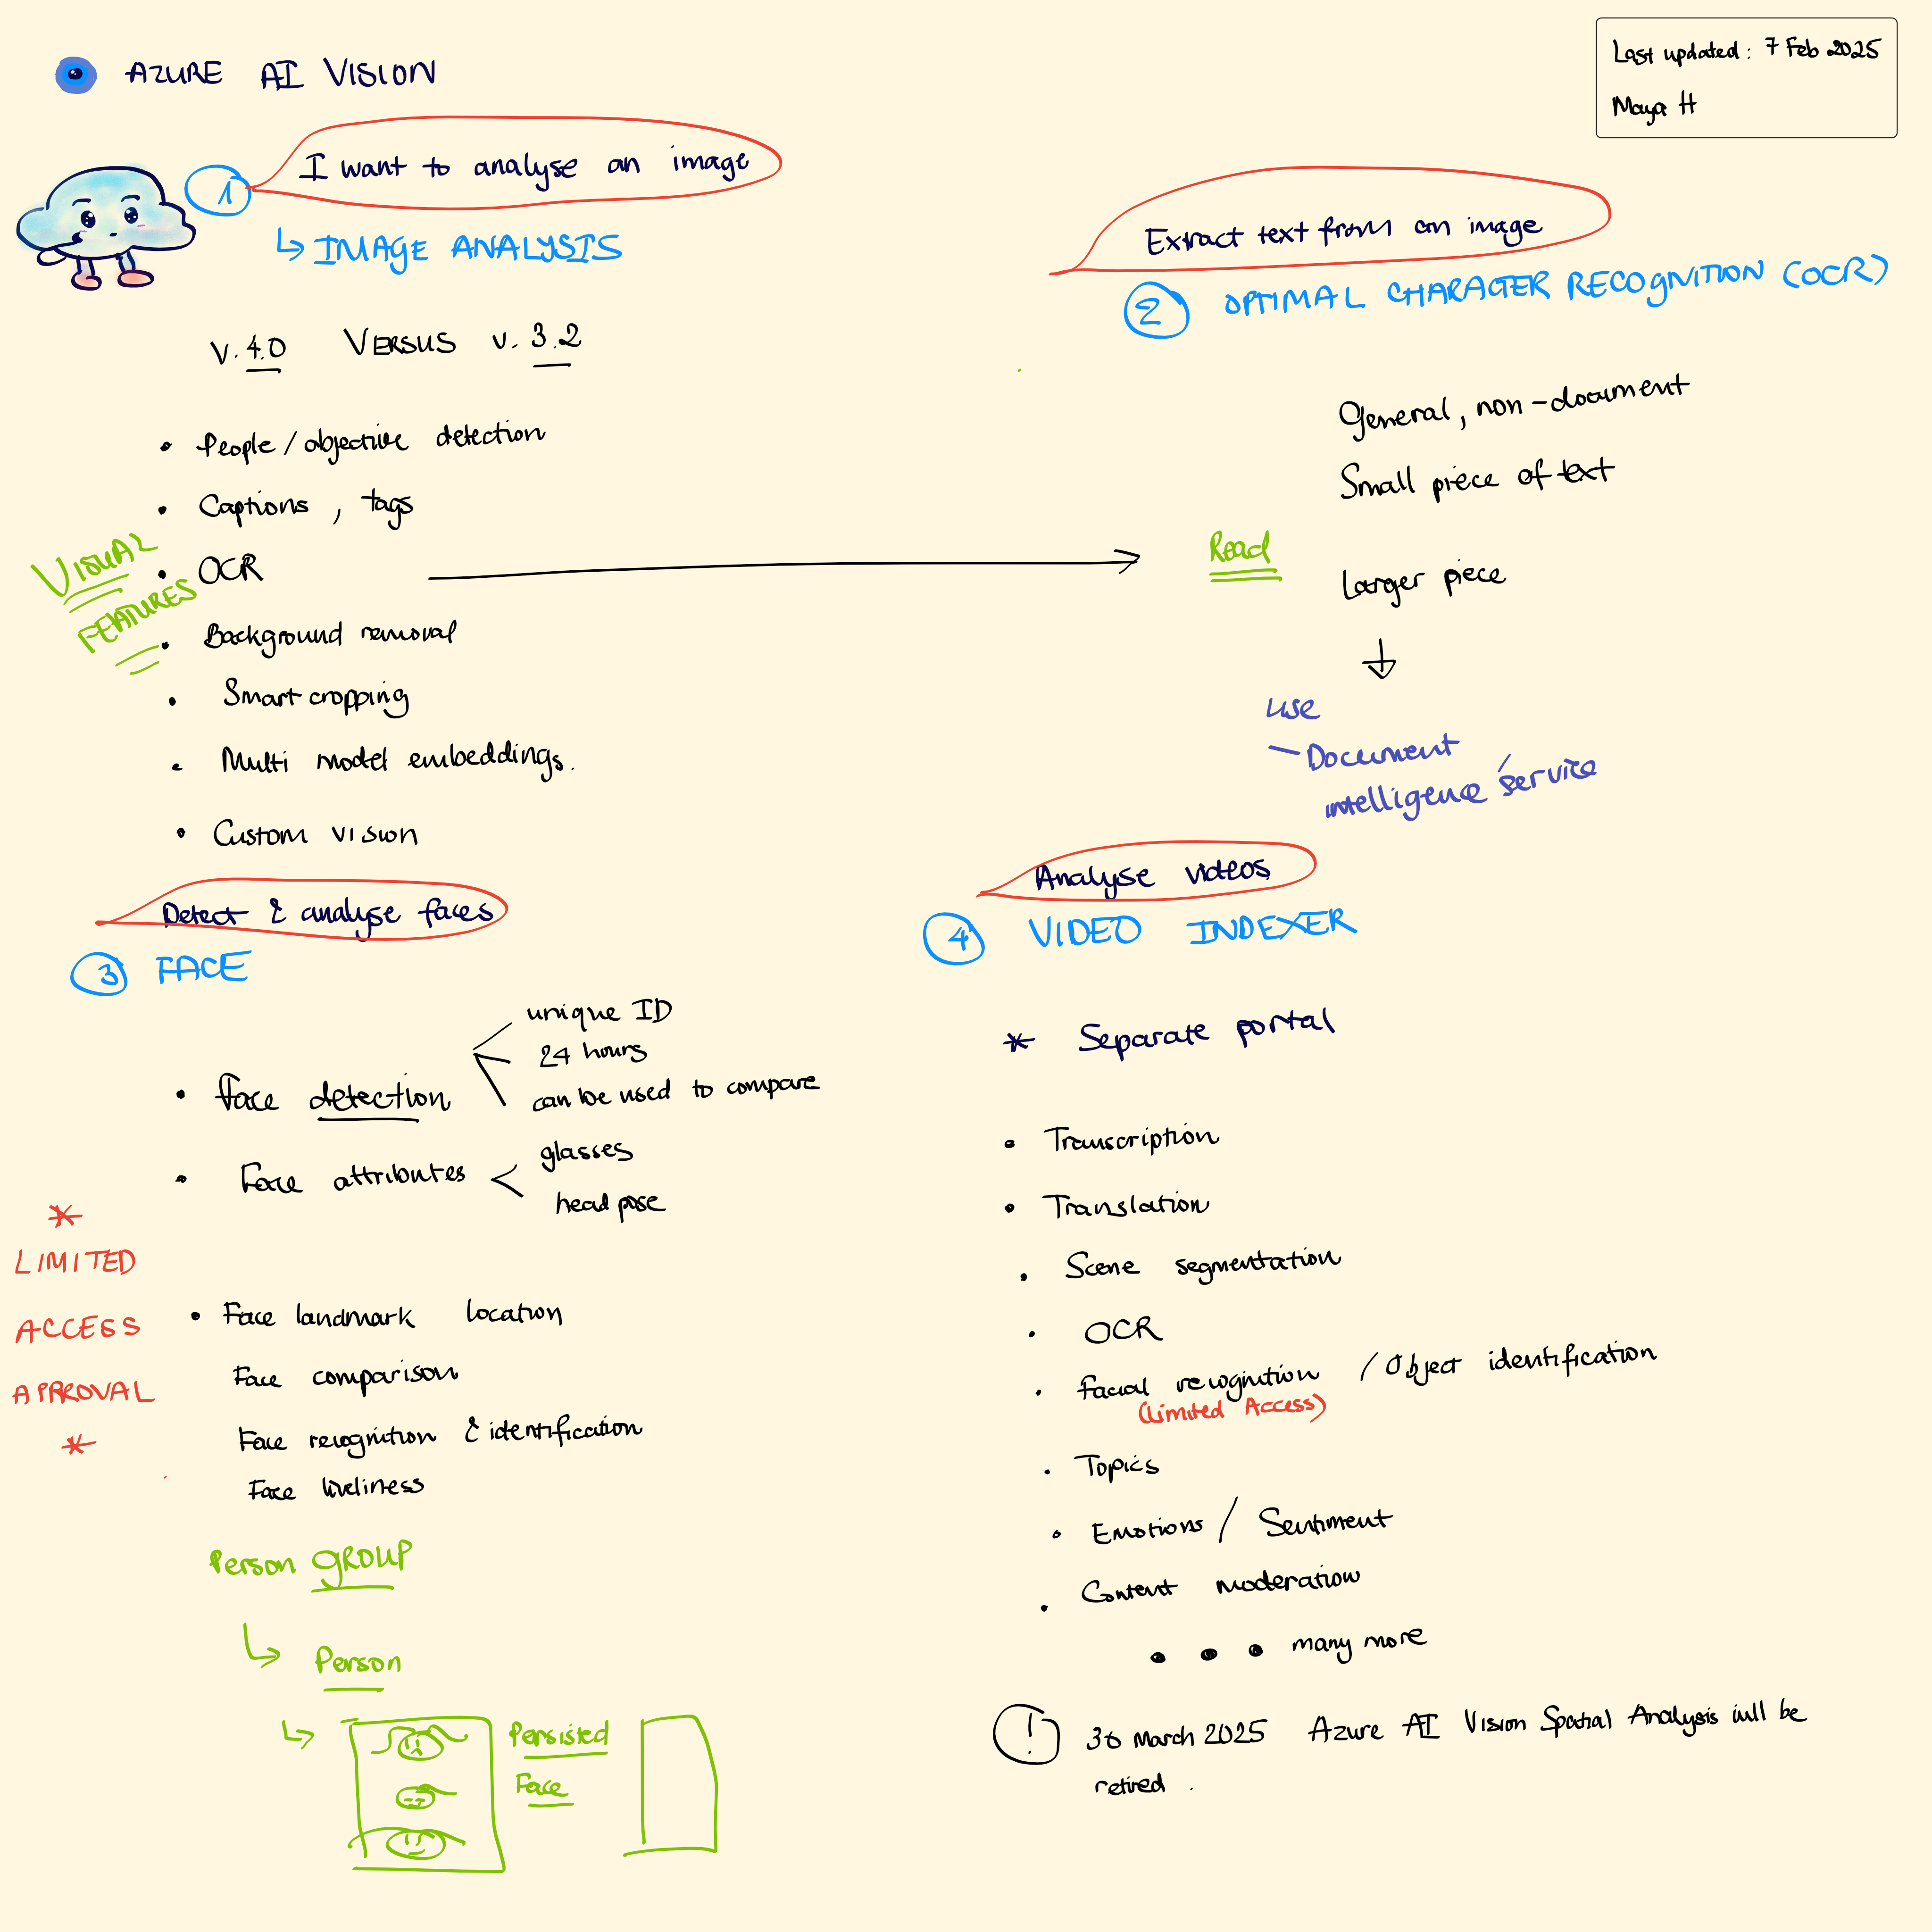 AZURE AI VISION
Last updated: 7 Feb 2025
Maya H
1 I want to analyse an image
↳ IMAGE ANALYSIS
V. 4.0 VERSUS v. 3.2
• People/objective detection
• Captions, tags
• OCR
• Background removal
• Smart cropping
• Multi model embeddings.
• Custom vision
VISUAL
FEATURES
Extract text from an image
2 OPTIMAL CHARACTER RECOGNITION (OCR)
General, non-document
Small piece of text
Read
Larger piece
use
- Document
intelligence service
Detect & analyse faces
3 FACE
• Face detection
unique ID
24 hours
can be used to compare
• Face attributes
glasses
head pose
*
LIMITED
ACCESS
APPROVAL
*
• Face landmark location
Face comparison
Face recognition & identification
Face liveliness
Person GROUP
↳ Person
↳ Persisted
Face
Analyse videos
4 VIDEO INDEXER
* Separate portal
• Transcription
• Translation
• Scene segmentation
• OCR
• Facial recognition / Object identification
(Limited Access)
• Topics
• Emotions / Sentiment
• Content moderation
• • • many more
! 30 March 2025 Azure AI Vision Spatial Analysis will be
retired.